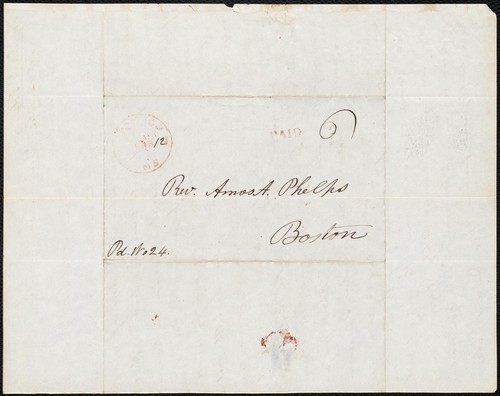 12
PAID 6
Rev. Amos A. Phelps
Boston
Pd. No 24.